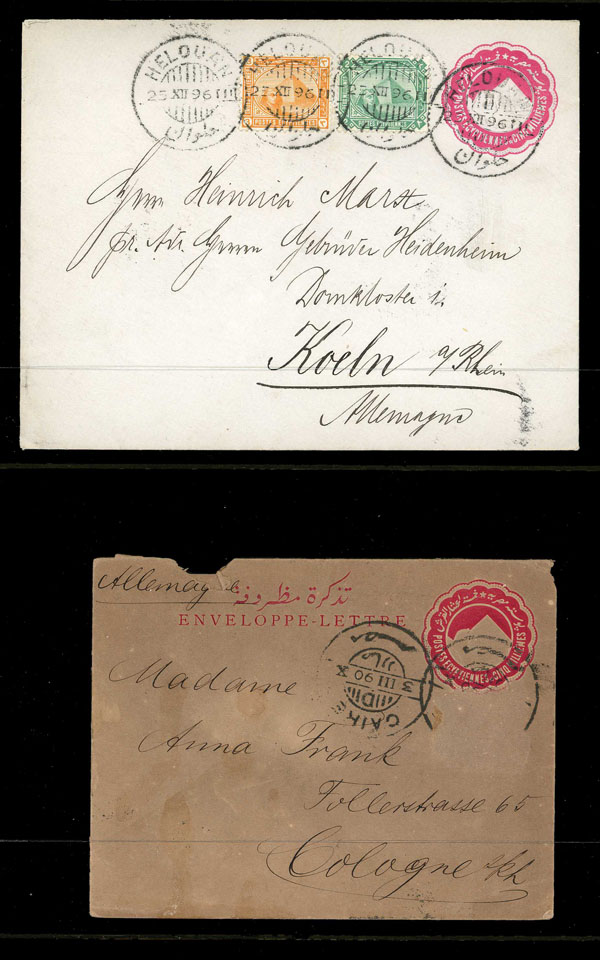 HELOUAN
25 XII 96
حلوان
HELOUAN
25 XII 96
حلوان
HELOUAN
XII 96
حلوان
HELOUAN
XII 96
حلوان
POSTES EGYPTIENNES CINQ MILLIEMES
Herrn Heinrich Marx
pr. Adr. Herren Gebrüder Heidenheim
Domkloster
Koeln a/Rhein
Allemagne
Allemagne
تذكرة مظروفة
ENVELOPPE-LETTRE
بوستة مصرية
POSTES EGYPTIENNES CINQ MILLIEMES
CAIR
3 III 90 X
D
Madame
Anna Frank
Follerstrasse 65
Cologne